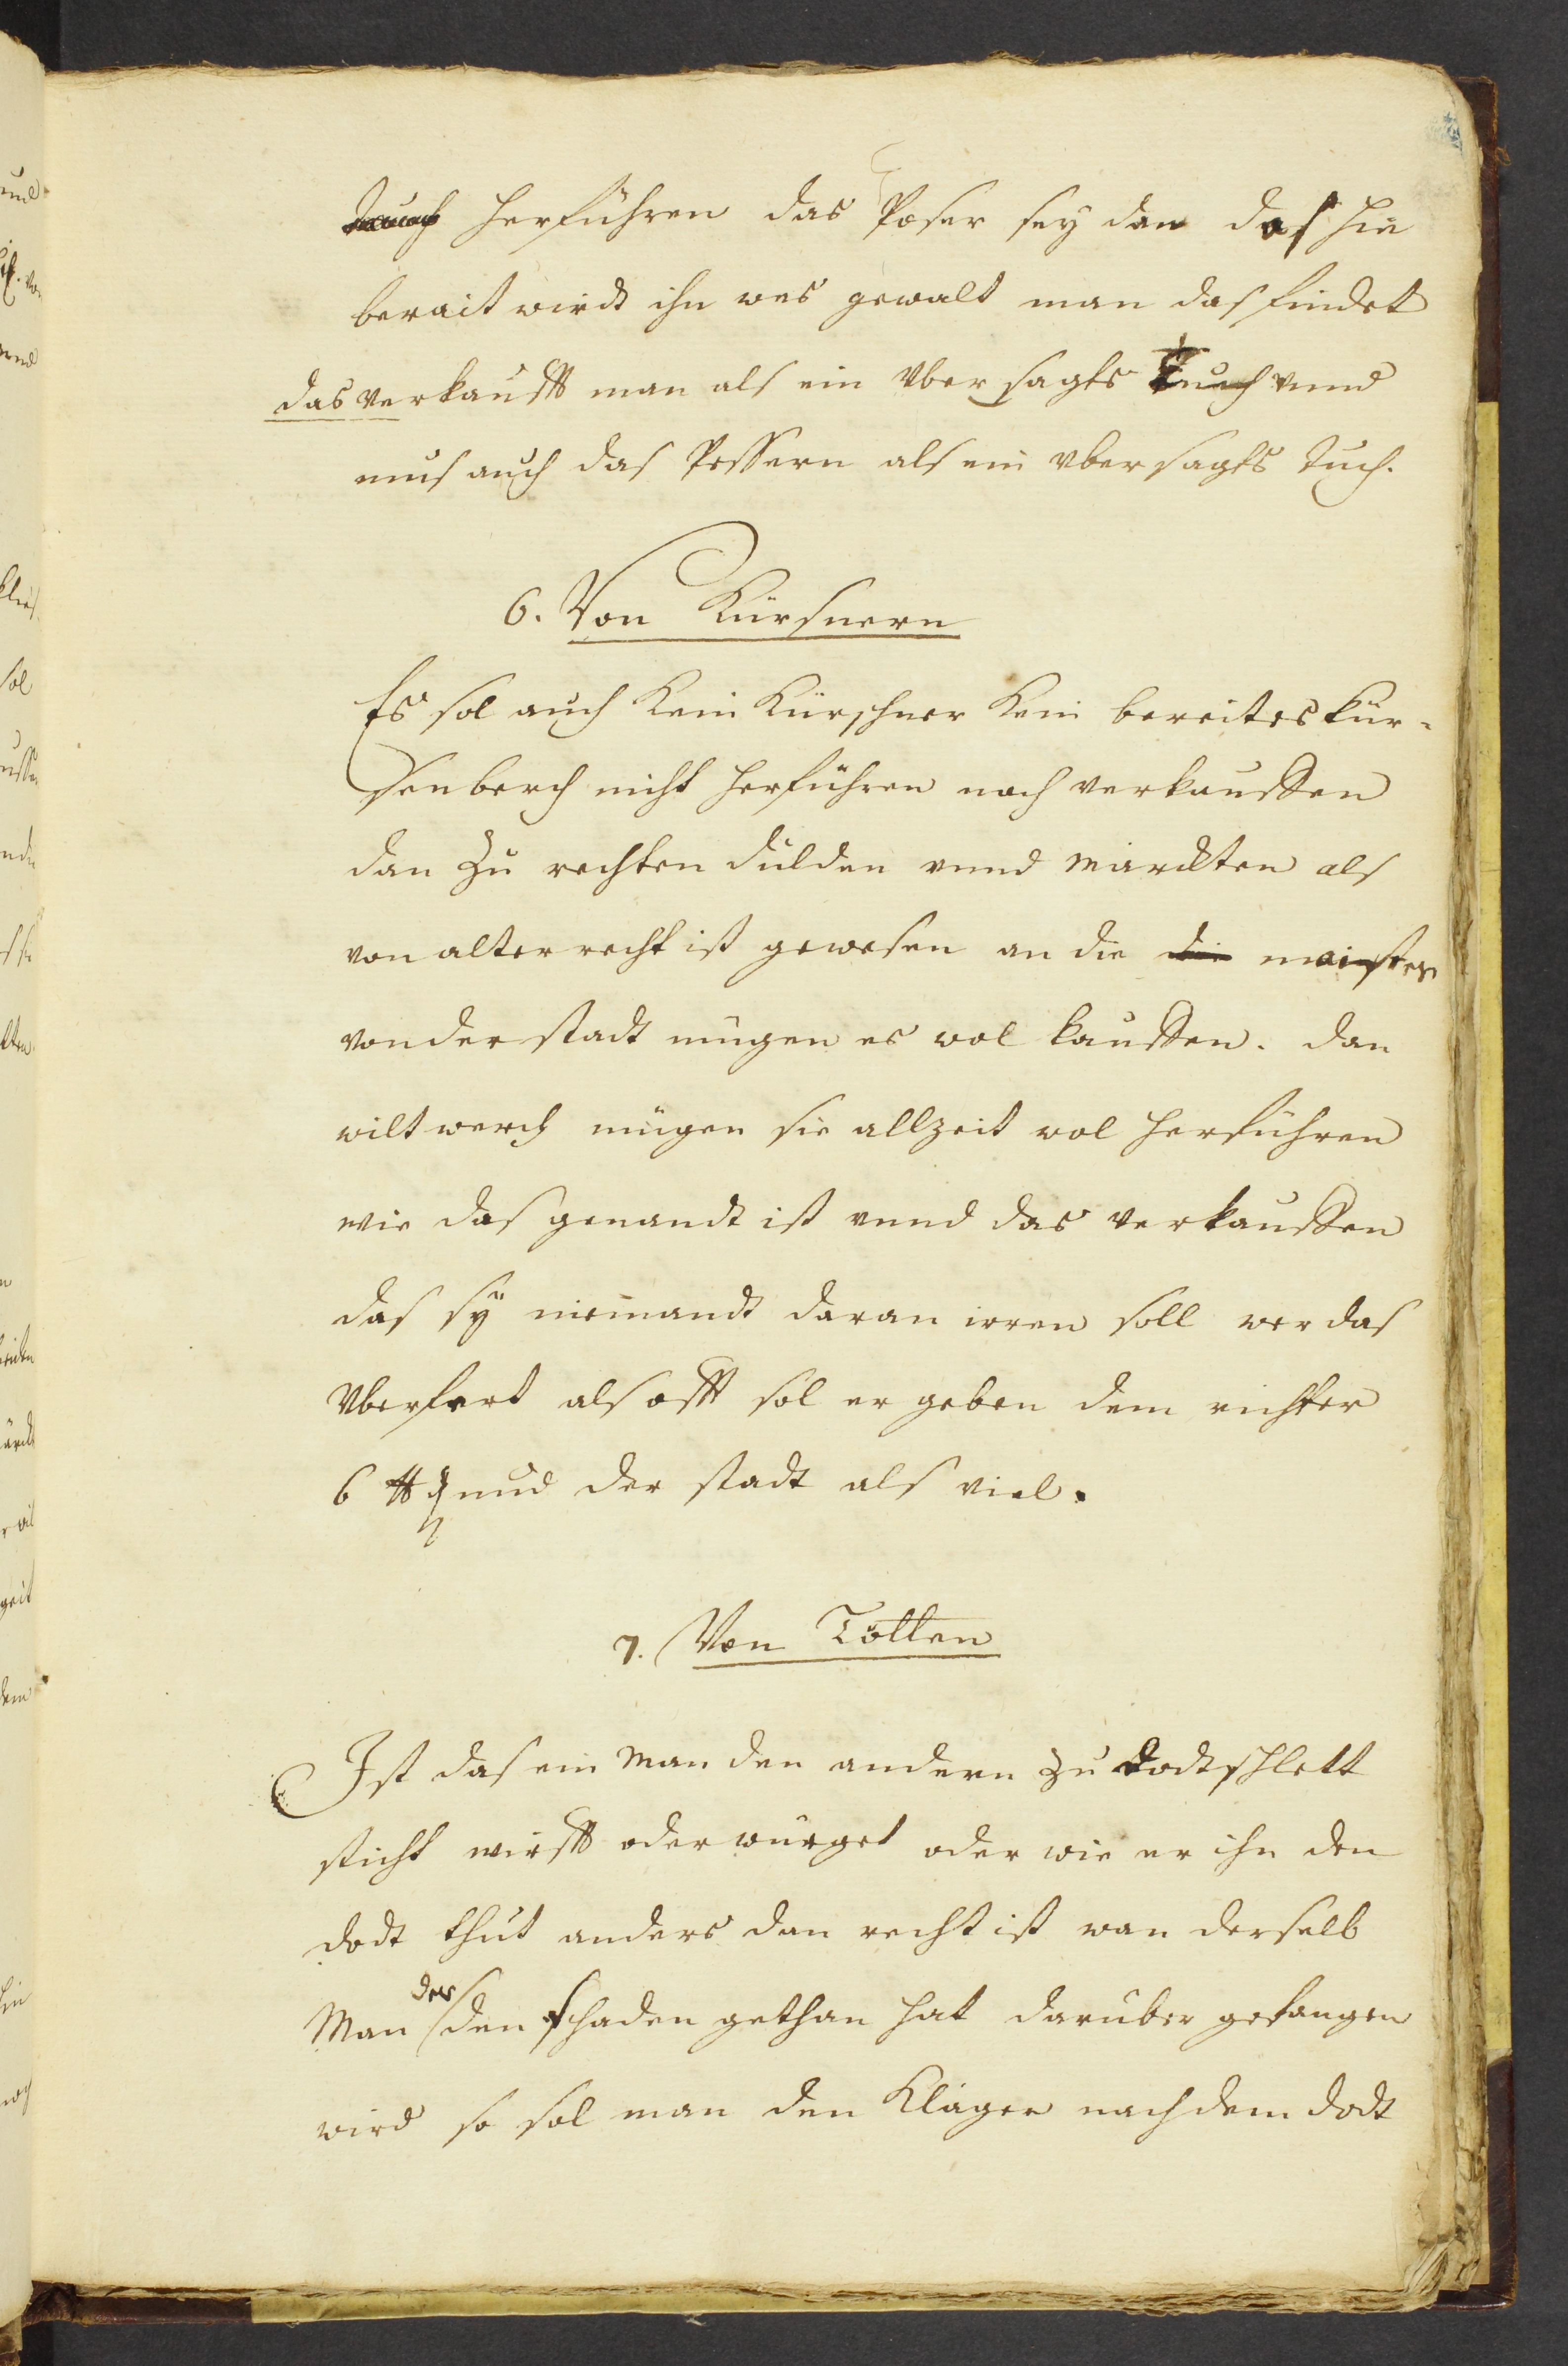 herführen das Poser sey den das hie
berait wirdt ihn wes gewalt man das findet
das verkaufft man als ein vber sagts Tuch vnnd
mus auch das Pessern als ein vber sagts tuch.
6. Von Kürsnern
Es sol auch kein Kürschner kein bereites kür-
senberch nicht herführen noch verkauffen
dan zu rechten dulden vnnd märckten als
von alter recht ist gewesen an die die maister
von der stadt mügen es wol kauffen. dan
wiltwerch mügen sie allzeit wol herführen
wie das genandt ist vnnd das verkauffen
das sÿ niemandt daran irren soll wer das
vberfert als offt sol er geben dem richter
6 ℔ ₰ vnd der stadt als viel.
7. Von Tötten
Ist das ein Man den andern zu dodt schlett
sticht wirfft oder würget oder wie er ihn den
dodt thut anders dan recht ist wan derselb
Man der den schaden gethan hat darüber gefangen
wird so sol man den Kläger nach dem dodt